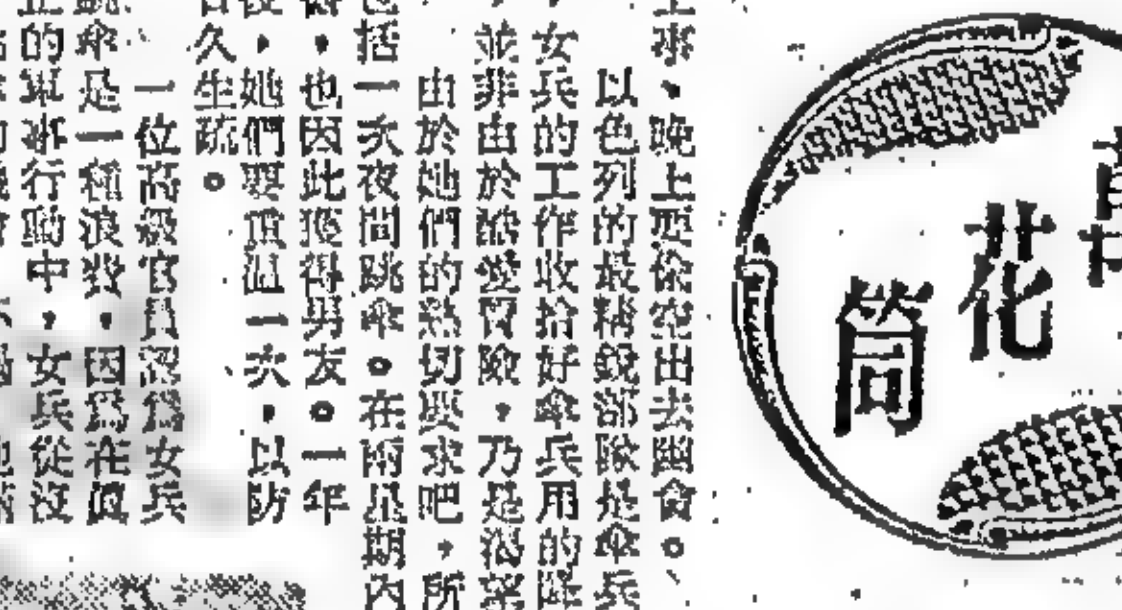 花
筒
晚上要偷空出去幽會。
以色列的最精銳部隊是傘兵
女兵的工作收拾好傘兵用的降
並非由於酷愛冒險，乃是渴望
由於她們的熱切要求吧，所
括一次夜間跳傘。在兩星期內
，也因此獲得男友。一年
，她們要重溫一次，以防
久生疏。
一位高級官員認為女兵
傘是一種浪費，因為在真
的軍事行動中，女兵從沒